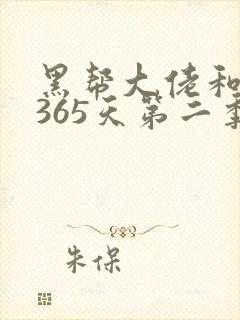 黑帮大佬和
365天第二季
朱保